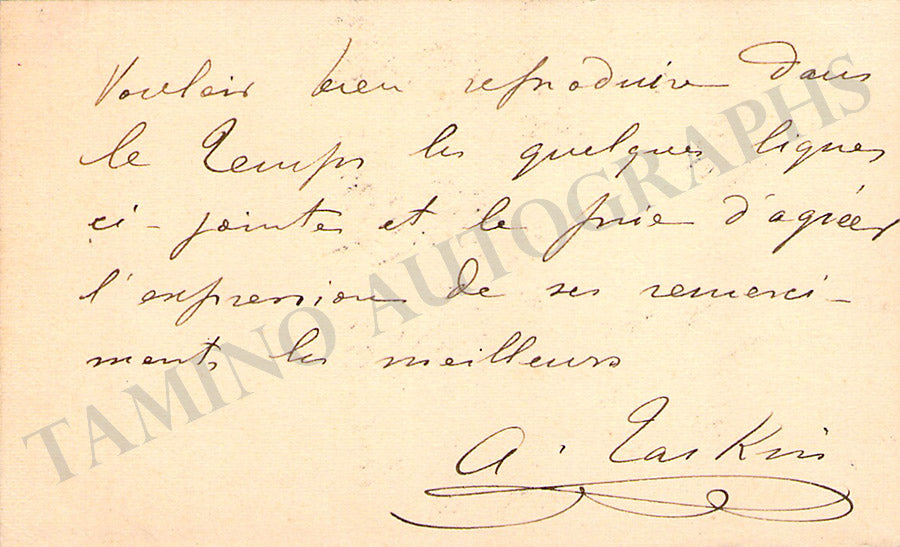 Vouloir bien reproduire dans
le Temps les quelques lignes
ci-jointes et le prie d'agréer
l'expression de ses remerci-
ments les meilleurs
A. Taskin
TAMINO AUTOGRAPHS